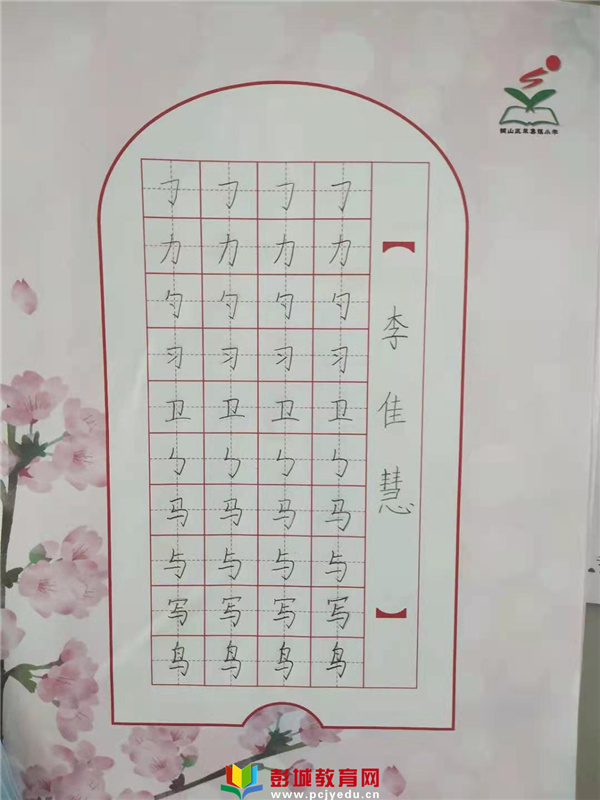 铜山区茅村镇小学
㇆ ㇆ ㇆ ㇆
力 力 力 力
勺 勺 勺 勺
习 习 习 习
卫 卫 卫 卫
㇉ ㇉ ㇉ ㇉
马 马 马 马
与 与 与 与
写 写 写 写
鸟 鸟 鸟 鸟
【李佳慧】
彭城教育网
www.pcjyedu.cn